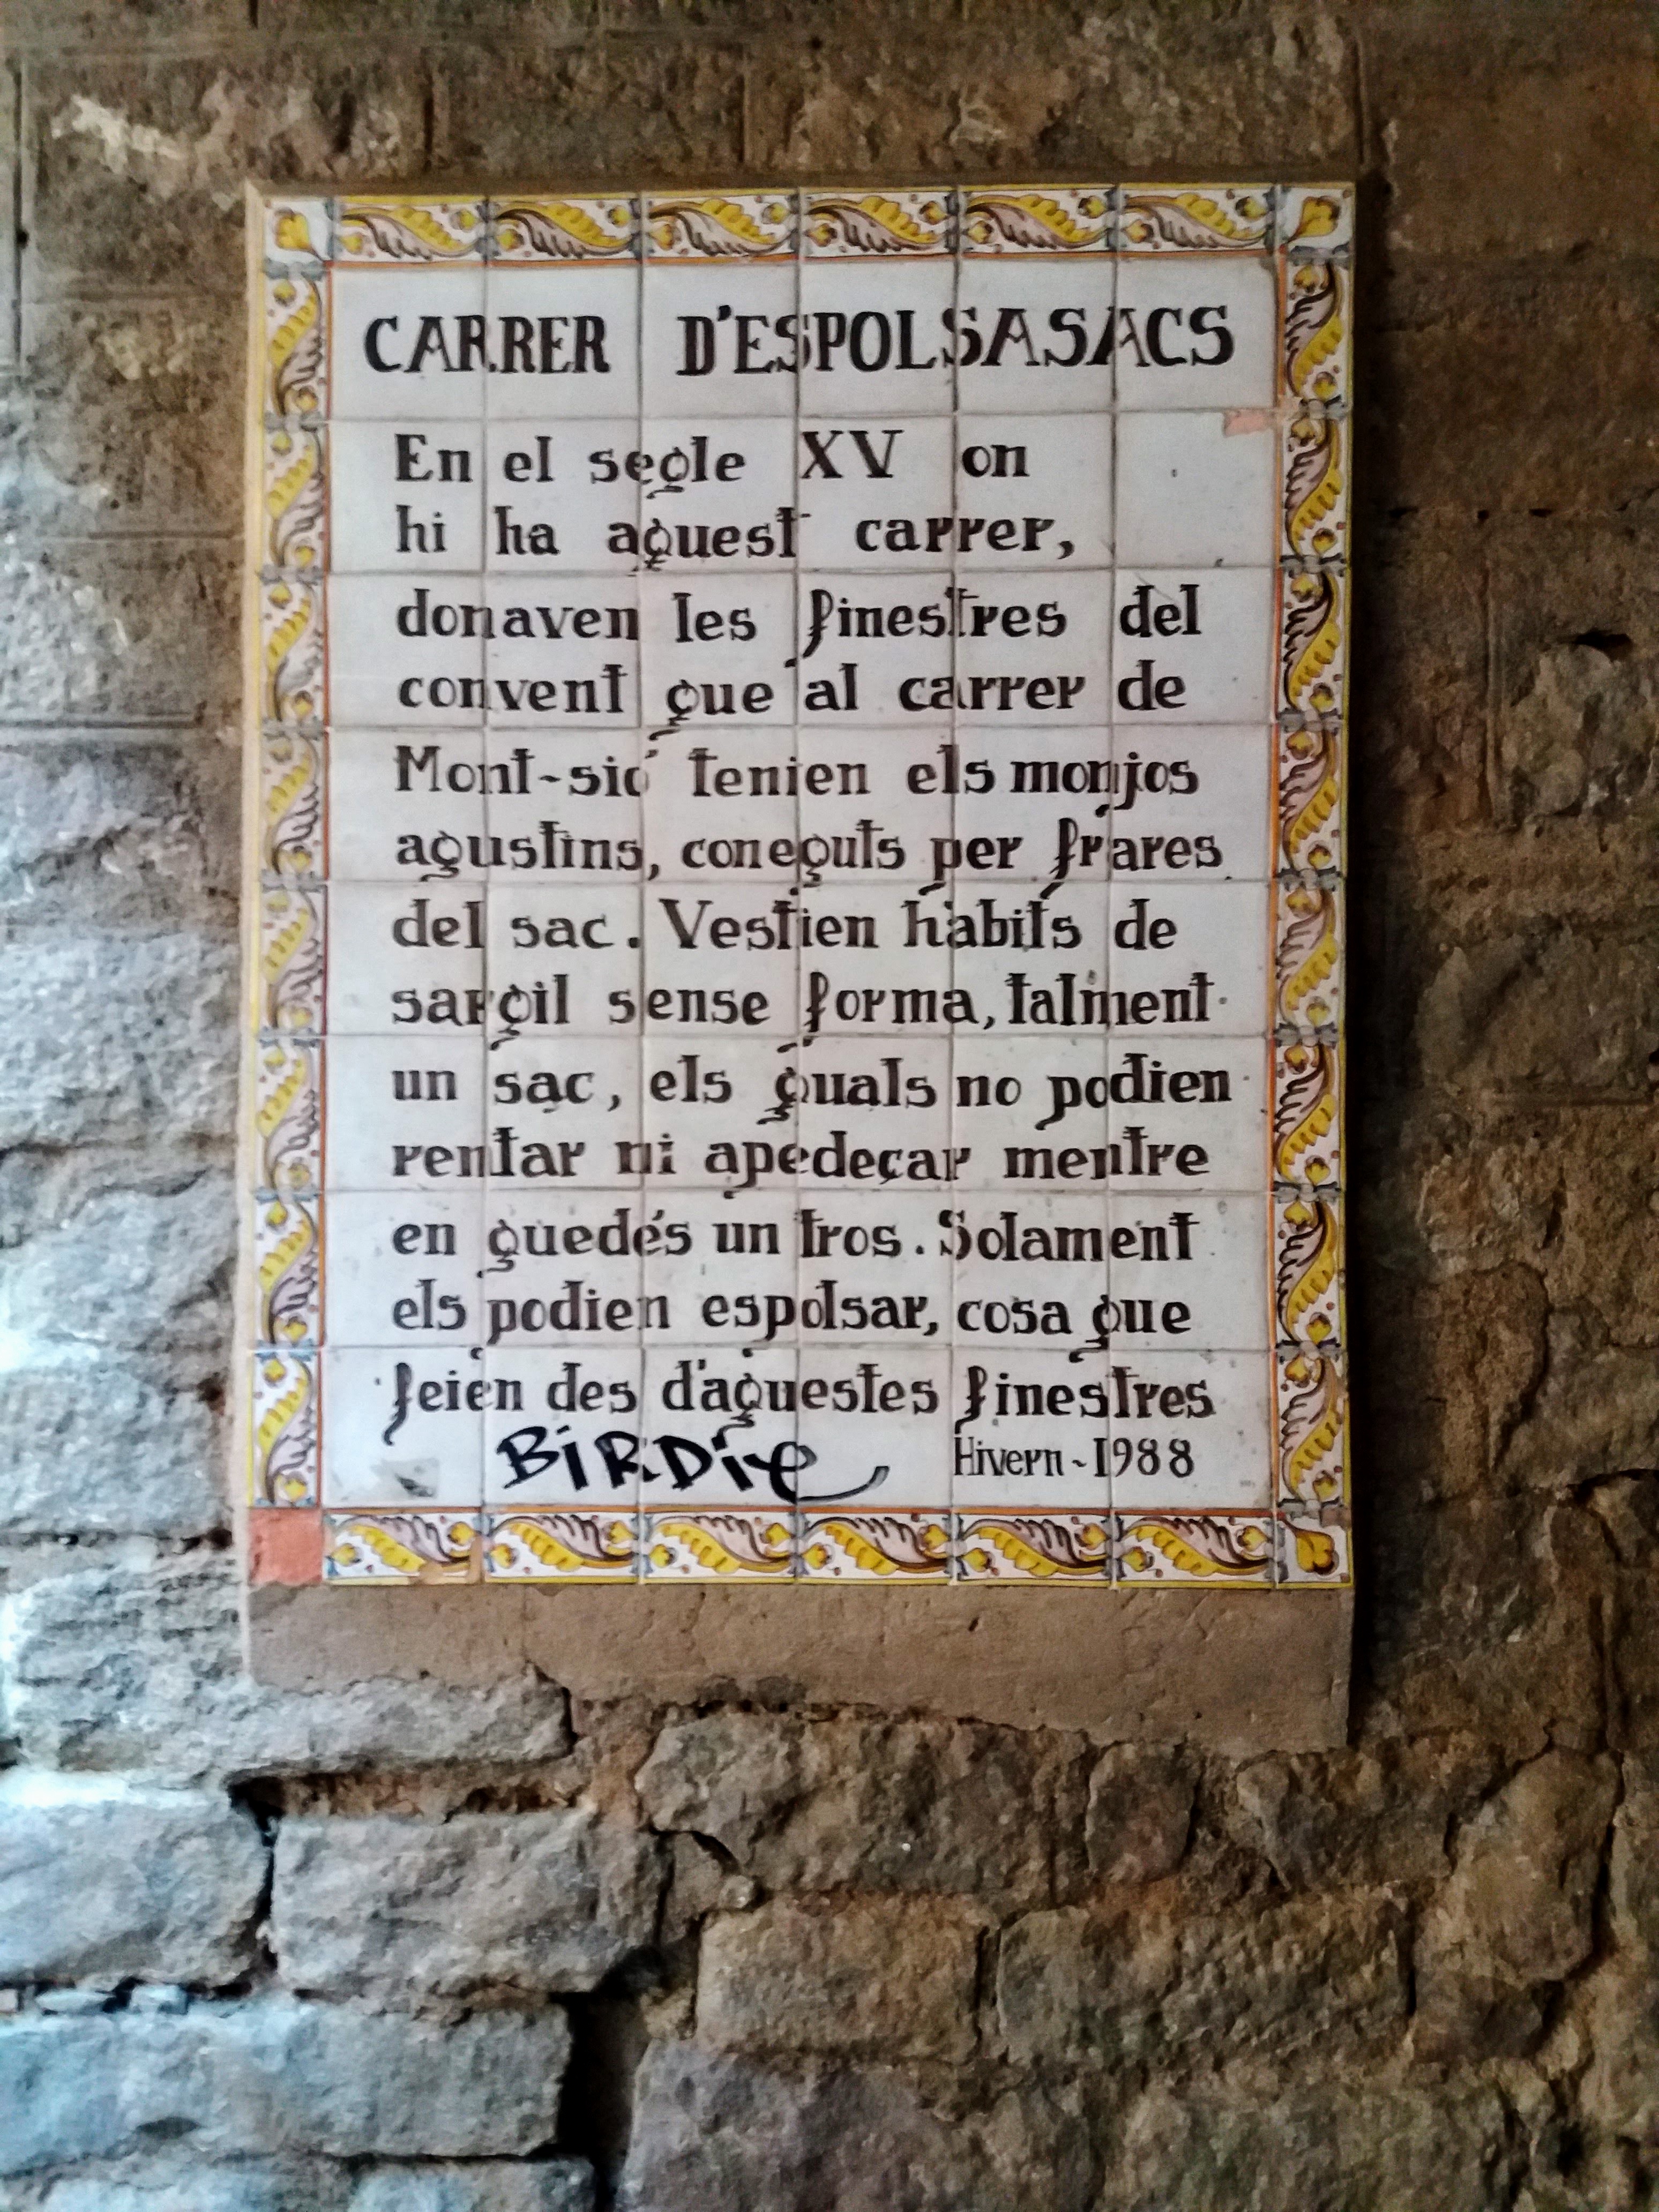 CARRER D'ESPOLSASACS
En el segle XV on
hi ha aquest carrer,
donaven les finestres del
convent que al carrer de
Mont-sió tenien els monjos
agustins, coneguts per frares
del sac. Vestien hàbits de
sargil sense forma, talment
un sac, els quals no podien
rentar ni apedeçar mentre
en quedés un tros. Solament
els podien espolsar, cosa que
feien des d'aquestes finestres
BiRDie
Hivern-1988